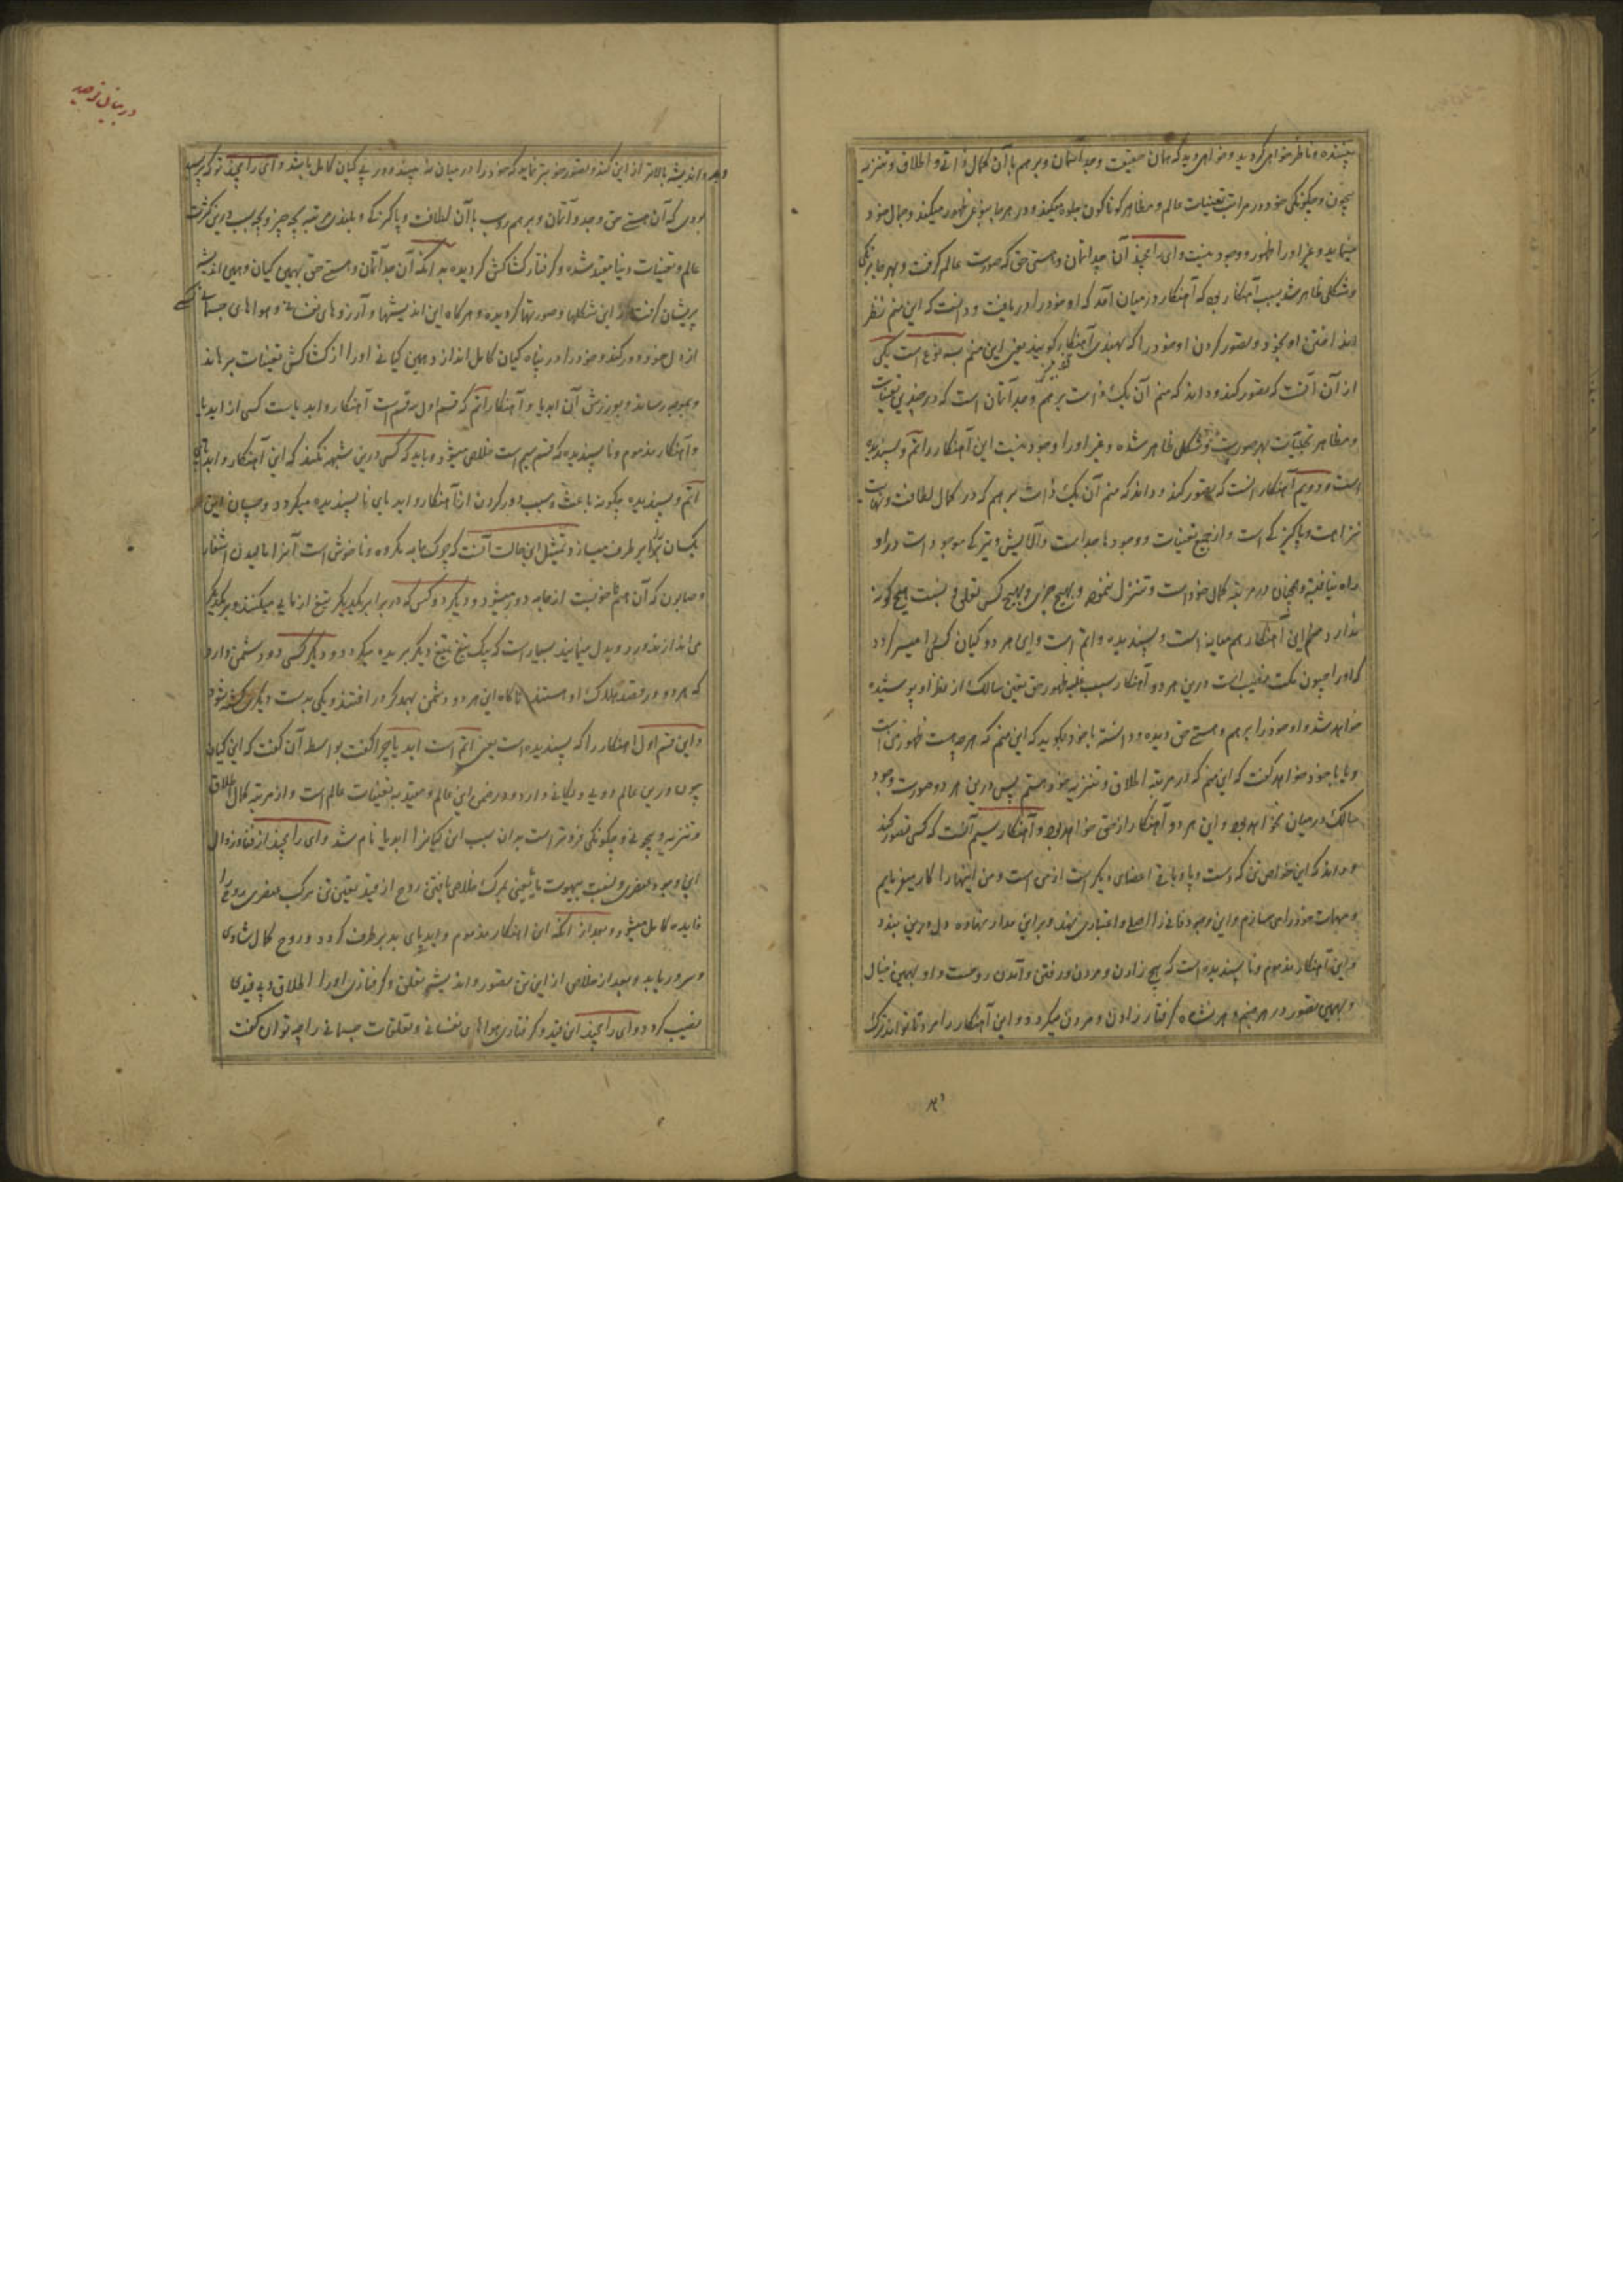 بیننده و ناظر خواهی گردید و خواهی دید که همان حقیقت و چدآتمان و برهم با آن کمال ذاتی و اطلاق و تنزیه
بیچون و چگونگی خود در مراتب تعینات عالم و مظاهر گوناگون جلوه میکند و در هر جا بنوعی ظهور میکند و جمال خود
مینماید و غیر او را ظهور و وجود نیست و ای رامچند آن چدآتمان و هستی حق که صورت عالم گرفت و بهر جا برنگی
و شکلی ظاهر شد بسبب آهنکار بی که آهنکار در میان آمد که او خود را دریافت و دانست که این منم نظر
انداختن او بخود و تصور کردن او خود را که بهندی آهنکار گویند یعنی این منم بسه نوع است یکی
از آن آنست که تصور کند و داند که منم آن یک ذات برهم و چدآتمان است که در چندین تعینات
و مظاهر تجلیات بهر صورت و شکلی ظاهر شده و غیر او را وجود نیست این آهنکار را اتم و پسندیده
است و دویم آهنکار آنست که تصور کند و داند که منم آن یک ذات برهم که در کمال لطافت و نهایت
نزاهت و پاکیزگی است و از جمیع تعینات و وجودها جداست و آلایش و تیرگی موجودات در او
راه نیافته و همچنان در مرتبه کمال خود است و تنزل ننموده و بهیچ چیزی و بهیچ کس تعلق و نسبت هیچ گونه
ندارد حکم این آهنکار هم همانه است و پسندیده و اتم است و این هر دو گیان کسی را میسر گردد
که او را جیون مکت نصیب است درین هر دو آهنکار بسبب غلبه ظهور حق تعین سالک از نظر او پوشیده
خواهد شد و او خود را برهم و هستی حق دیده و دانسته با خود میگوید که این منم که هر چه هست ظهور من است
و یا با خود خواهد گفت که این منم که در مرتبه اطلاق و تنزیه خود هستم پس درین هر دو صورت وجود
سالک در میان نخواهد بود و این هر دو آهنکار از حق خواهد بود و آهنکار سیم آنست که کسی تصور کند
و داند که این خواص تن که دست و پا و باقی اعضای دیگر است از من است و من اینها را کار میفرمایم
و مهمات خود را می سازم و این وجود فانی را اصلی و اعتباری نهد و برین مدار نهاده دل درین بندد
و این آهنکار مذموم و ناپسندیده است که بیخ زادن و مردن و رفتن و آمدن روست و او بهمین خیال
و بهمین تصور در هر جنم و هر نشاه گرفتار زادن و مردن میگردد و این آهنکار را مرد تا تواند ترک
در بیان توحید
دهد و اندیشه بالاتر از این کند و تصور خوبتر نماید که خود را در میان نه بیند و در پی گیان کامل باشد و ای رامچند تو که پرسیده
بودی که آن هستی حق و چدآتمان و برهم سروپ با آن لطافت و پاکیزگی و بلندی مرتبه بچه چیز و بچه سبب درین کثرت
عالم و تعینات دنیا مقید شده و گرفتار کشاکش گردیده بدانکه آن چدآتمان و هستی حق بهمین گیان و همین اندیشه
پریشان گرفتار این شکلها و صورتها گردیده و هرگاه این اندیشها و آرزوهای نفسانی و هواهای جسمانی
از دل خود دور کند و خود را در پناه گیان کامل انداز و همین گیانی او را از کشاکش تعینات برهاند
و بمقصود رساند و بورزش آن ابدیا و آهنکار اتم که قسم اول و دویم است آهنکار و ابدیاست کسی از ابدیا
و آهنکار مذموم و ناپسندیده که قسم سیم است خلاص میشود و باید که کسی درین شبهه نکند که این آهنکار و ابدیای
اتم و پسندیده چگونه باعث و سبب دور کردن از آهنکار و ابدیای ناپسندیده میگردد و چسان این
یکسان دیگر را برطرف میسازد تمثیل این حالت آنست که چرک جامه مکروه و ناخوش است آنرا مالیدن اشخار
و صابون که آن هم ناخوش است از جامه دور میشود و دیگر دو کس که در برابر یکدیگر تیغ ازمایی میکنند و بر یکدیگر
می اندازند و رد و بدل مینمایند بسیار است که یک تیغ بتیغ دیگر بریده میگردد و دیگر کسی دو دشمن دارد
که هر دو در قصد هلاک او هستند ناگاه این هر دو دشمن بهم دگر در افتند و یکی بدست دیگری کشته شود
و این قسم اول اهنکار را که پسندیده است یعنی اتم است ابدیا چرا گفت بواسطه آن گفت که این گیان
چون درین عالم دویی و یگانگی دارد و در ضمن این عالم و مقید به تعینات عالم است و از مرتبه کمال اطلاق
و تنزیه و بیچونی و بیچگونگی فروتر است بدان سبب این گیان را ابدیا نام شد و ای رامچند از فنا و زوال
این وجود عنصری و نسبت بیهوت یا یعنی بمرگ خلاص یافتن روح از قید تعین تن مرکب عنصری روح را
فایده کامل میشود و بعد از آنکه این اهنکار مذموم و ابدیای بد برطرف گردد و روح کمال شادی
و سرور یابد و بعد از خلاصی از این تن تصور و اندیشه تعلق و گرفتاری او را اطلاق و بی قیدی
نصیب گردد و ای رامچند این قید و گرفتاری هواهای نفسانی و تعلقات جسمانی را چه توان گفت